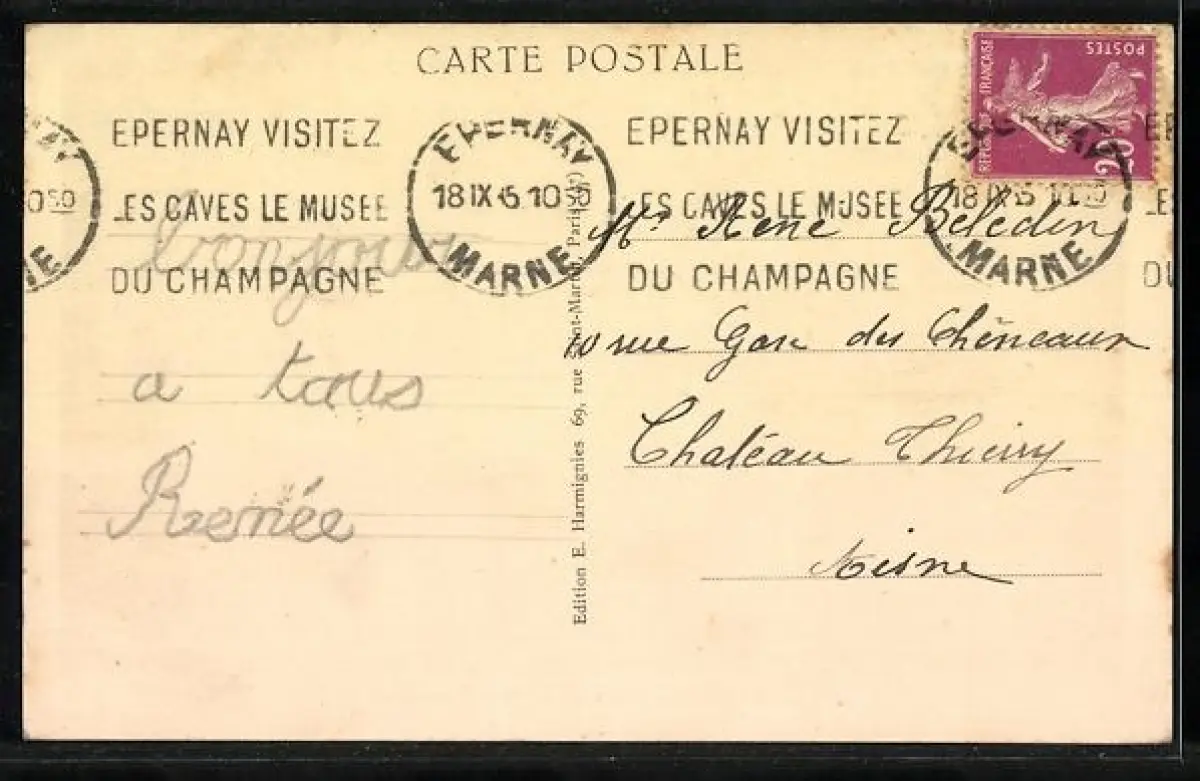 CARTE POSTALE
REPUBLIQUE FRANÇAISE
POSTES
20
EPERNAY VISITEZ
LES CAVES LE MUSEE
DU CHAMPAGNE
EPERNAY
18 IX 10 50
MARNE
EPERNAY VISITEZ
LES CAVES LE MUSEE
DU CHAMPAGNE
EPERNAY
18 IX
MARNE
bonjour
a tous
Renée
Edition E. Harmignies 69, rue Saint-Martin, Paris
Mr René Belédin
10 rue Gare des Chéneaux
Chatéau Thierry
Aisne